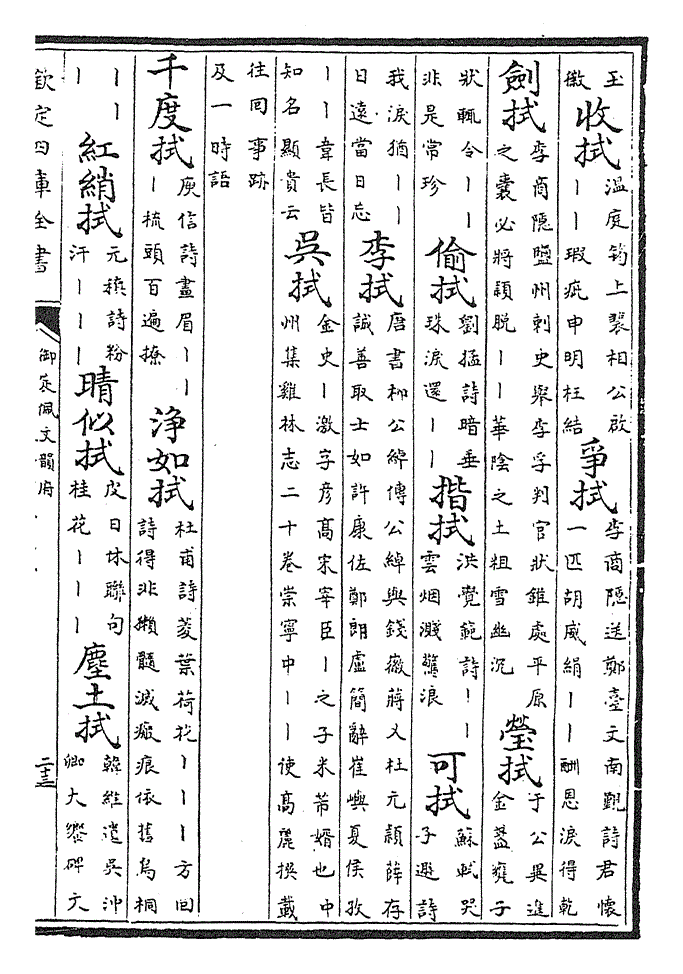 玉徽收拭溫庭筠上裴相公啟丨丨瑕疵申明枉結爭拭李商隱送鄭臺文南覲詩君懷一匹胡威絹丨丨酬恩淚得乾
劍拭李商隱鹽州刺史舉李孚判官狀錐處平原之囊必將穎脫丨丨華陰之土粗雪幽沉瑩拭于公異進金盞甕子
狀輒令丨丨非是常珍偷拭劉猛詩暗垂珠淚還丨丨揩拭洪覺範詩丨丨雲烟濺驚浪可拭蘇軾哭子遯詩
我淚猶丨丨日遠當日忘李拭唐書柳公綽傳公綽與錢徽蔣乂杜元穎薛存誠善取士如許康佐鄭朗盧簡辭崔嶼夏侯孜
丨丨韋長皆知名顯貴云吳拭金史丨激字彦髙宋宰臣丨之子米芾婿也中州集雞林志二十卷崇寧中丨丨使髙麗撰載
往回事跡及一時語
千度拭庾信詩畫眉丨丨丨梳頭百遍撩淨如拭杜甫詩菱葉荷花丨丨丨方回詩得非獺髓滅瘢痕依舊烏桐
丨丨丨紅綃拭元稹詩粉汗丨丨丨晴似拭皮日休聯句桂花丨丨丨塵土拭韓維遣吳沖卿大響碑文
欽定四庫全書
御定佩文韻府
二十三